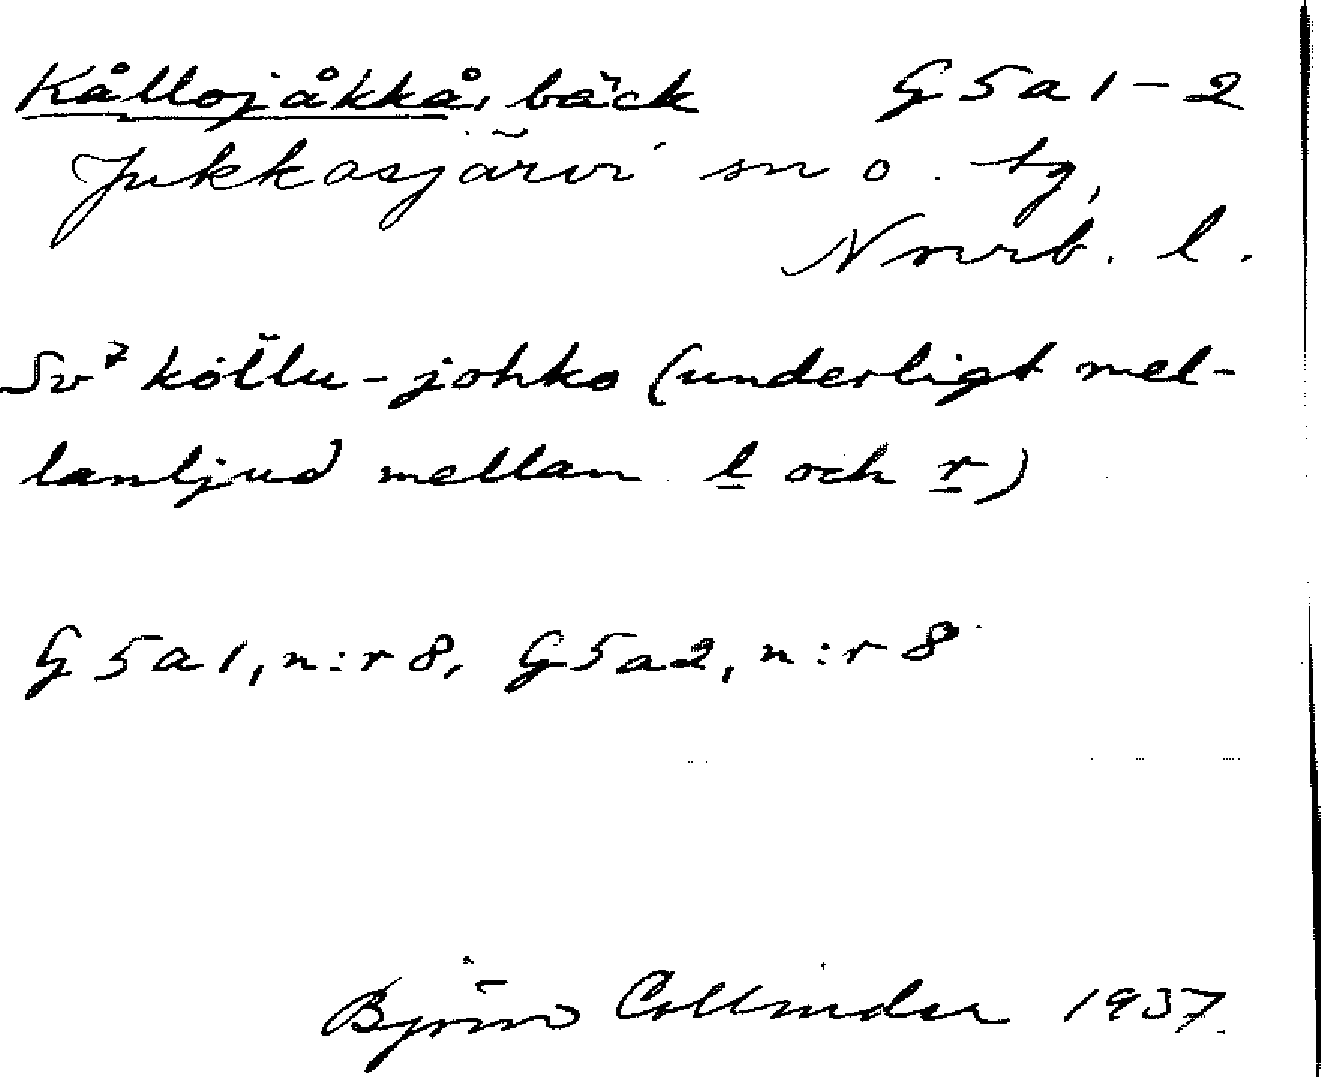 Kållojåkkå, bäck G5a1-2
Jukkasjärvi sn o. tg,
Norrb. l.
Sv⁷ kö̆llu-johko (underligt mel-
lanljud mellan l och r)
G5a1, n:r 8, G5a2, n:r 8
Björn Collinder 1937.